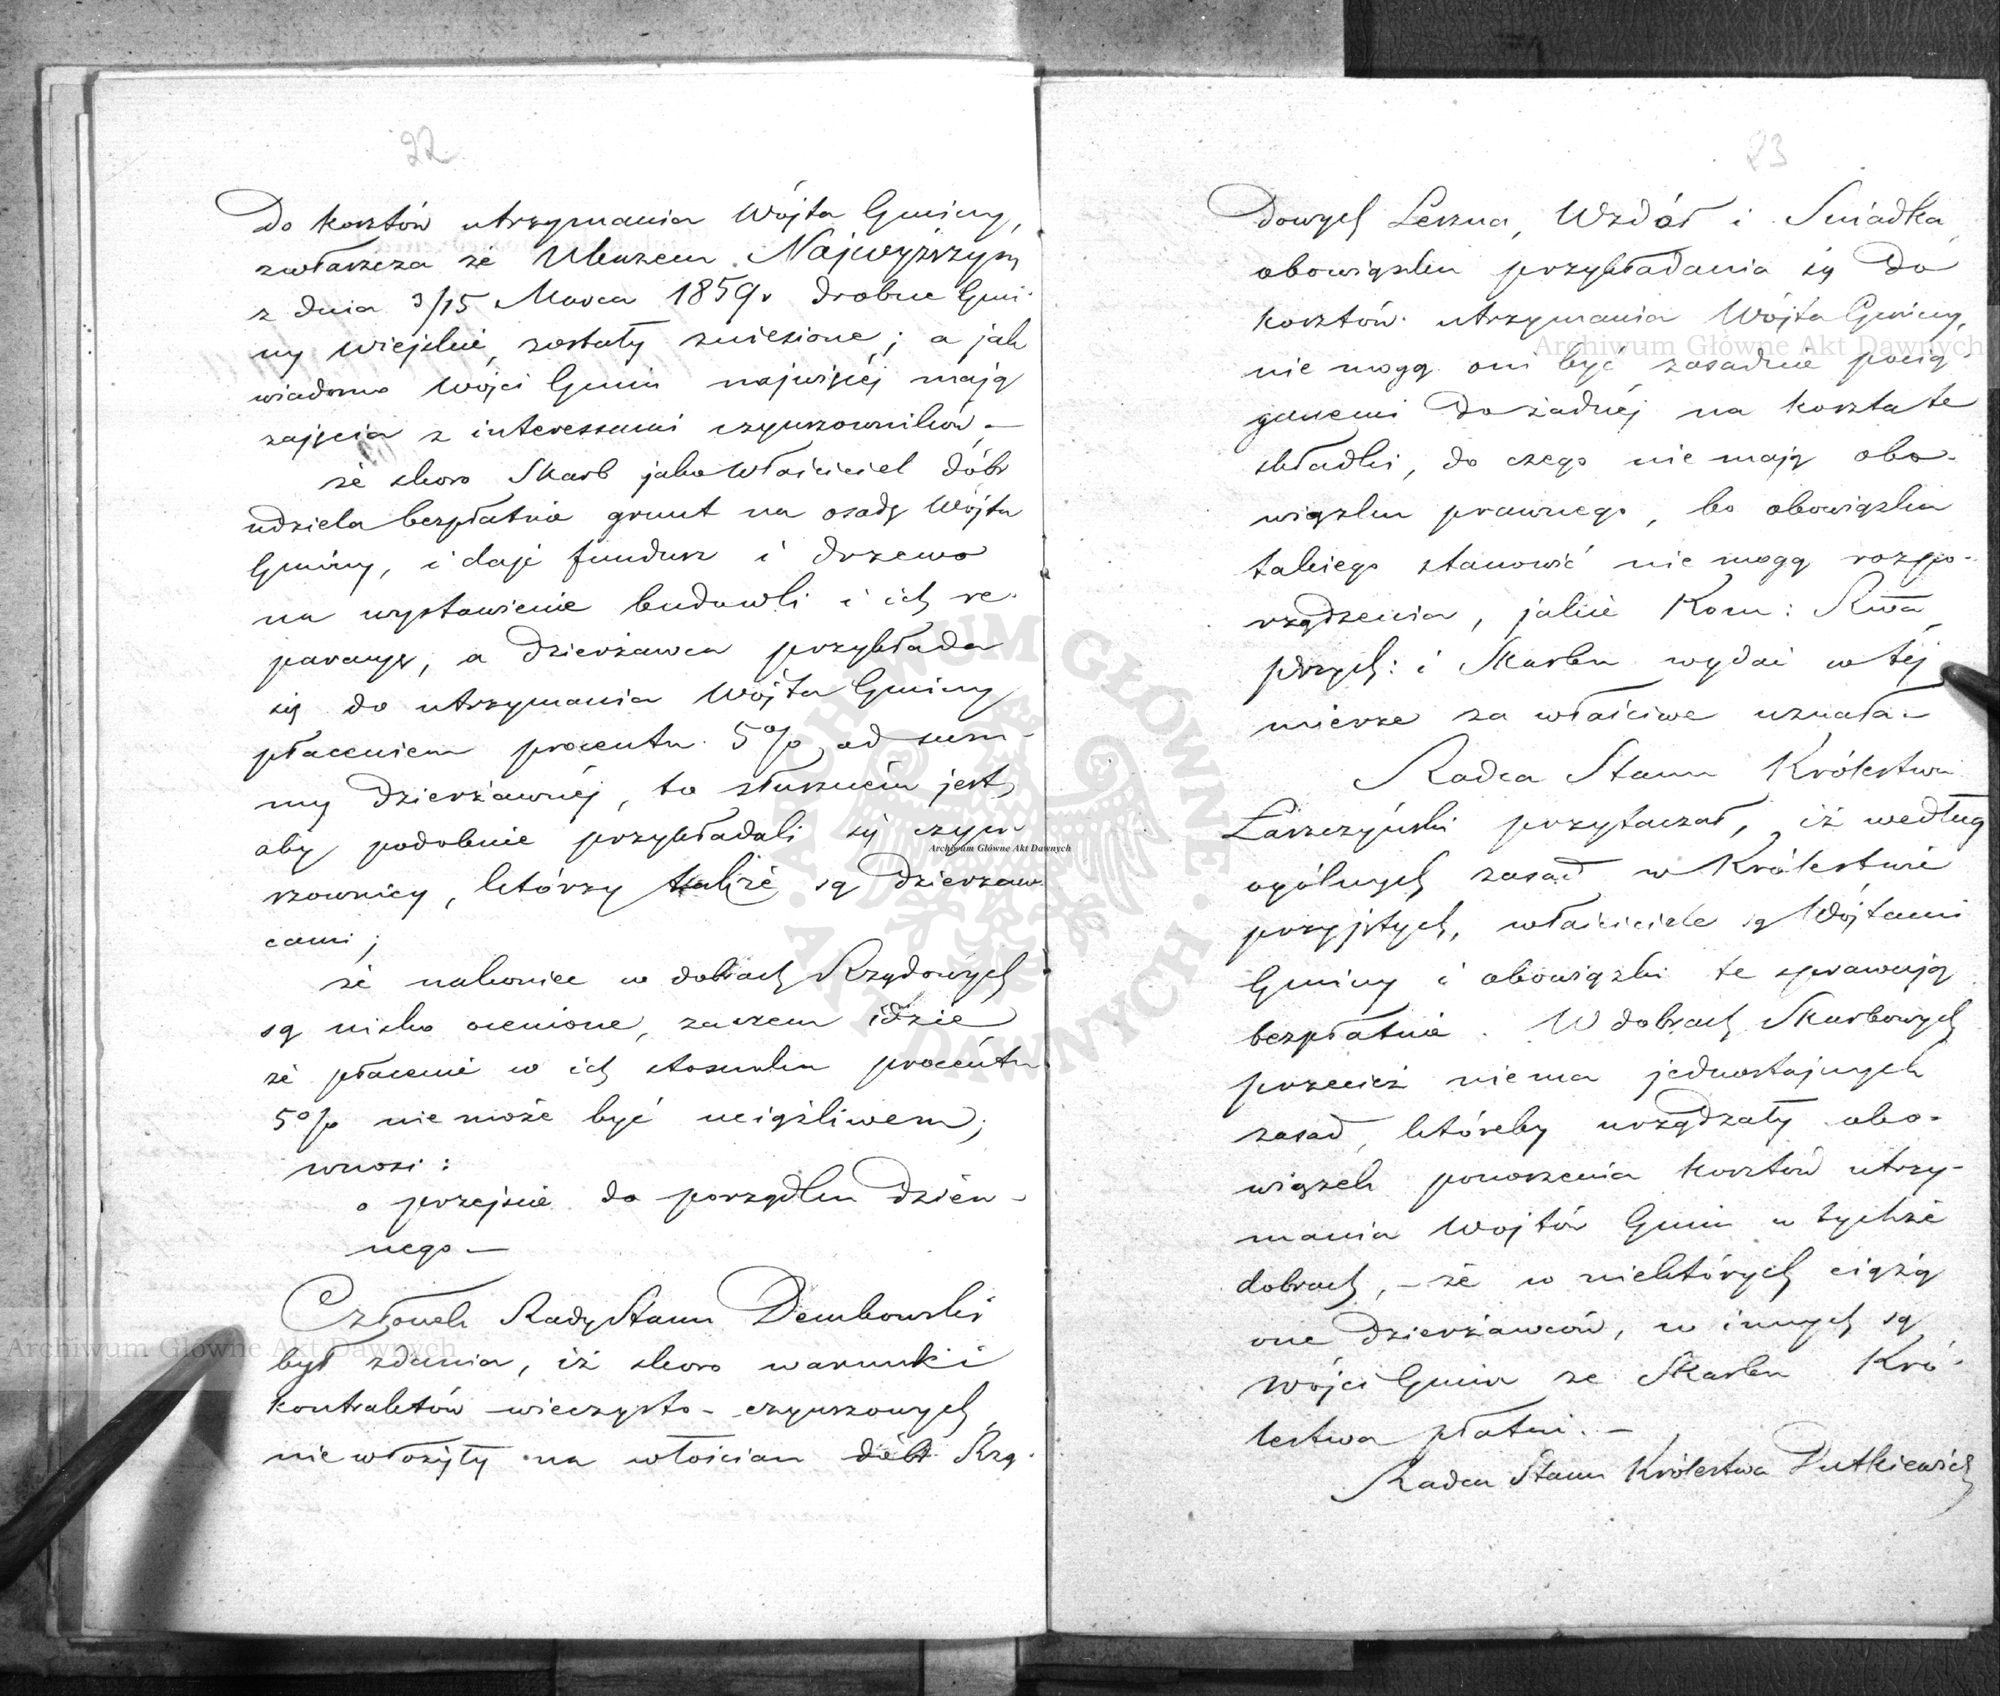 22
Do kosztów utrzymania Wójta Gminy,
zwłaszcza że Ukazem Najwyższym
z dnia 3/15 Marca 1859 r drobne Gmi-
ny wiejskie, zostały zniesione; a jak
wiadomo Wójci Gmin najwięcej mają
zajęcia z interessami czynszowników,—
że skoro Skarb jako Właściciel dóbr
udziela bezpłatnie grunt na osadę Wójta
Gminy, i daje fundusz i drzewo
na wystawienie budowli i ich re-
paracye, a Dzierżawca przykłada
się do utrzymania Wójta Gminy
płaceniem procentu 5% od sum-
my Dzierżawnéj, to słuszném jest,
aby podobnie przykładali się czyn-
szownicy, którzy także są Dzierżaw-
cami;
że nakoniec w dobrach Rządowych
są nisko ocenione, zaczem idzie
że płacenie w ich stosunku procentu
5% nie może być uciążliwem;
wnosi:
o przejście do porządku dzien-
nego—
Członek Rady Stanu Dembowski
był zdania, iż skoro warunki
kontraktów wieczysto-czynszowych
nie włożyły na włościan dóbr Rzą-
23
dowych Leszna, Wzdół i Sniadka,
obowiązku przykładania się do
kosztów utrzymania Wójta Gminy,
nie mogą oni być zasadnie pocią-
gnieni do żadnéj na koszta te
składki, do czego nie mają obo-
wiązku prawnego, bo obowiązku
takiego stanowić nie mogą rozpo-
rządzenia, jakie Kom: Rwa
Przych: i Skarbu wydać w téj
mierze za właściwe uznała—
Radca Stanu Królestwa
Łaszczyński przytaczał, iż według
ogólnych zasad w Królestwie
przyjętych, właściciele są Wójtami
Gminy i obowiązki te sprawują
bezpłatnie. W dobrach Skarbowych
przecież niema jednostajnych
zasad, któreby urządzały obo-
wiązek ponoszenia kosztów utrzy-
mania Wójtów Gmin w tychże
dobrach,—że w niektórych ciążą
one Dzierżawców, w innych są
Wójci Gmin ze Skarbu Kró-
lestwa płatni.—
Radca Stanu Królestwa Dutkiewicz
Archiwum Główne Akt Dawnych
Archiwum Główne Akt Dawnych
Archiwum Główne Akt Dawnych
ARCHIWUM GŁÓWNE AKT DAWNYCH